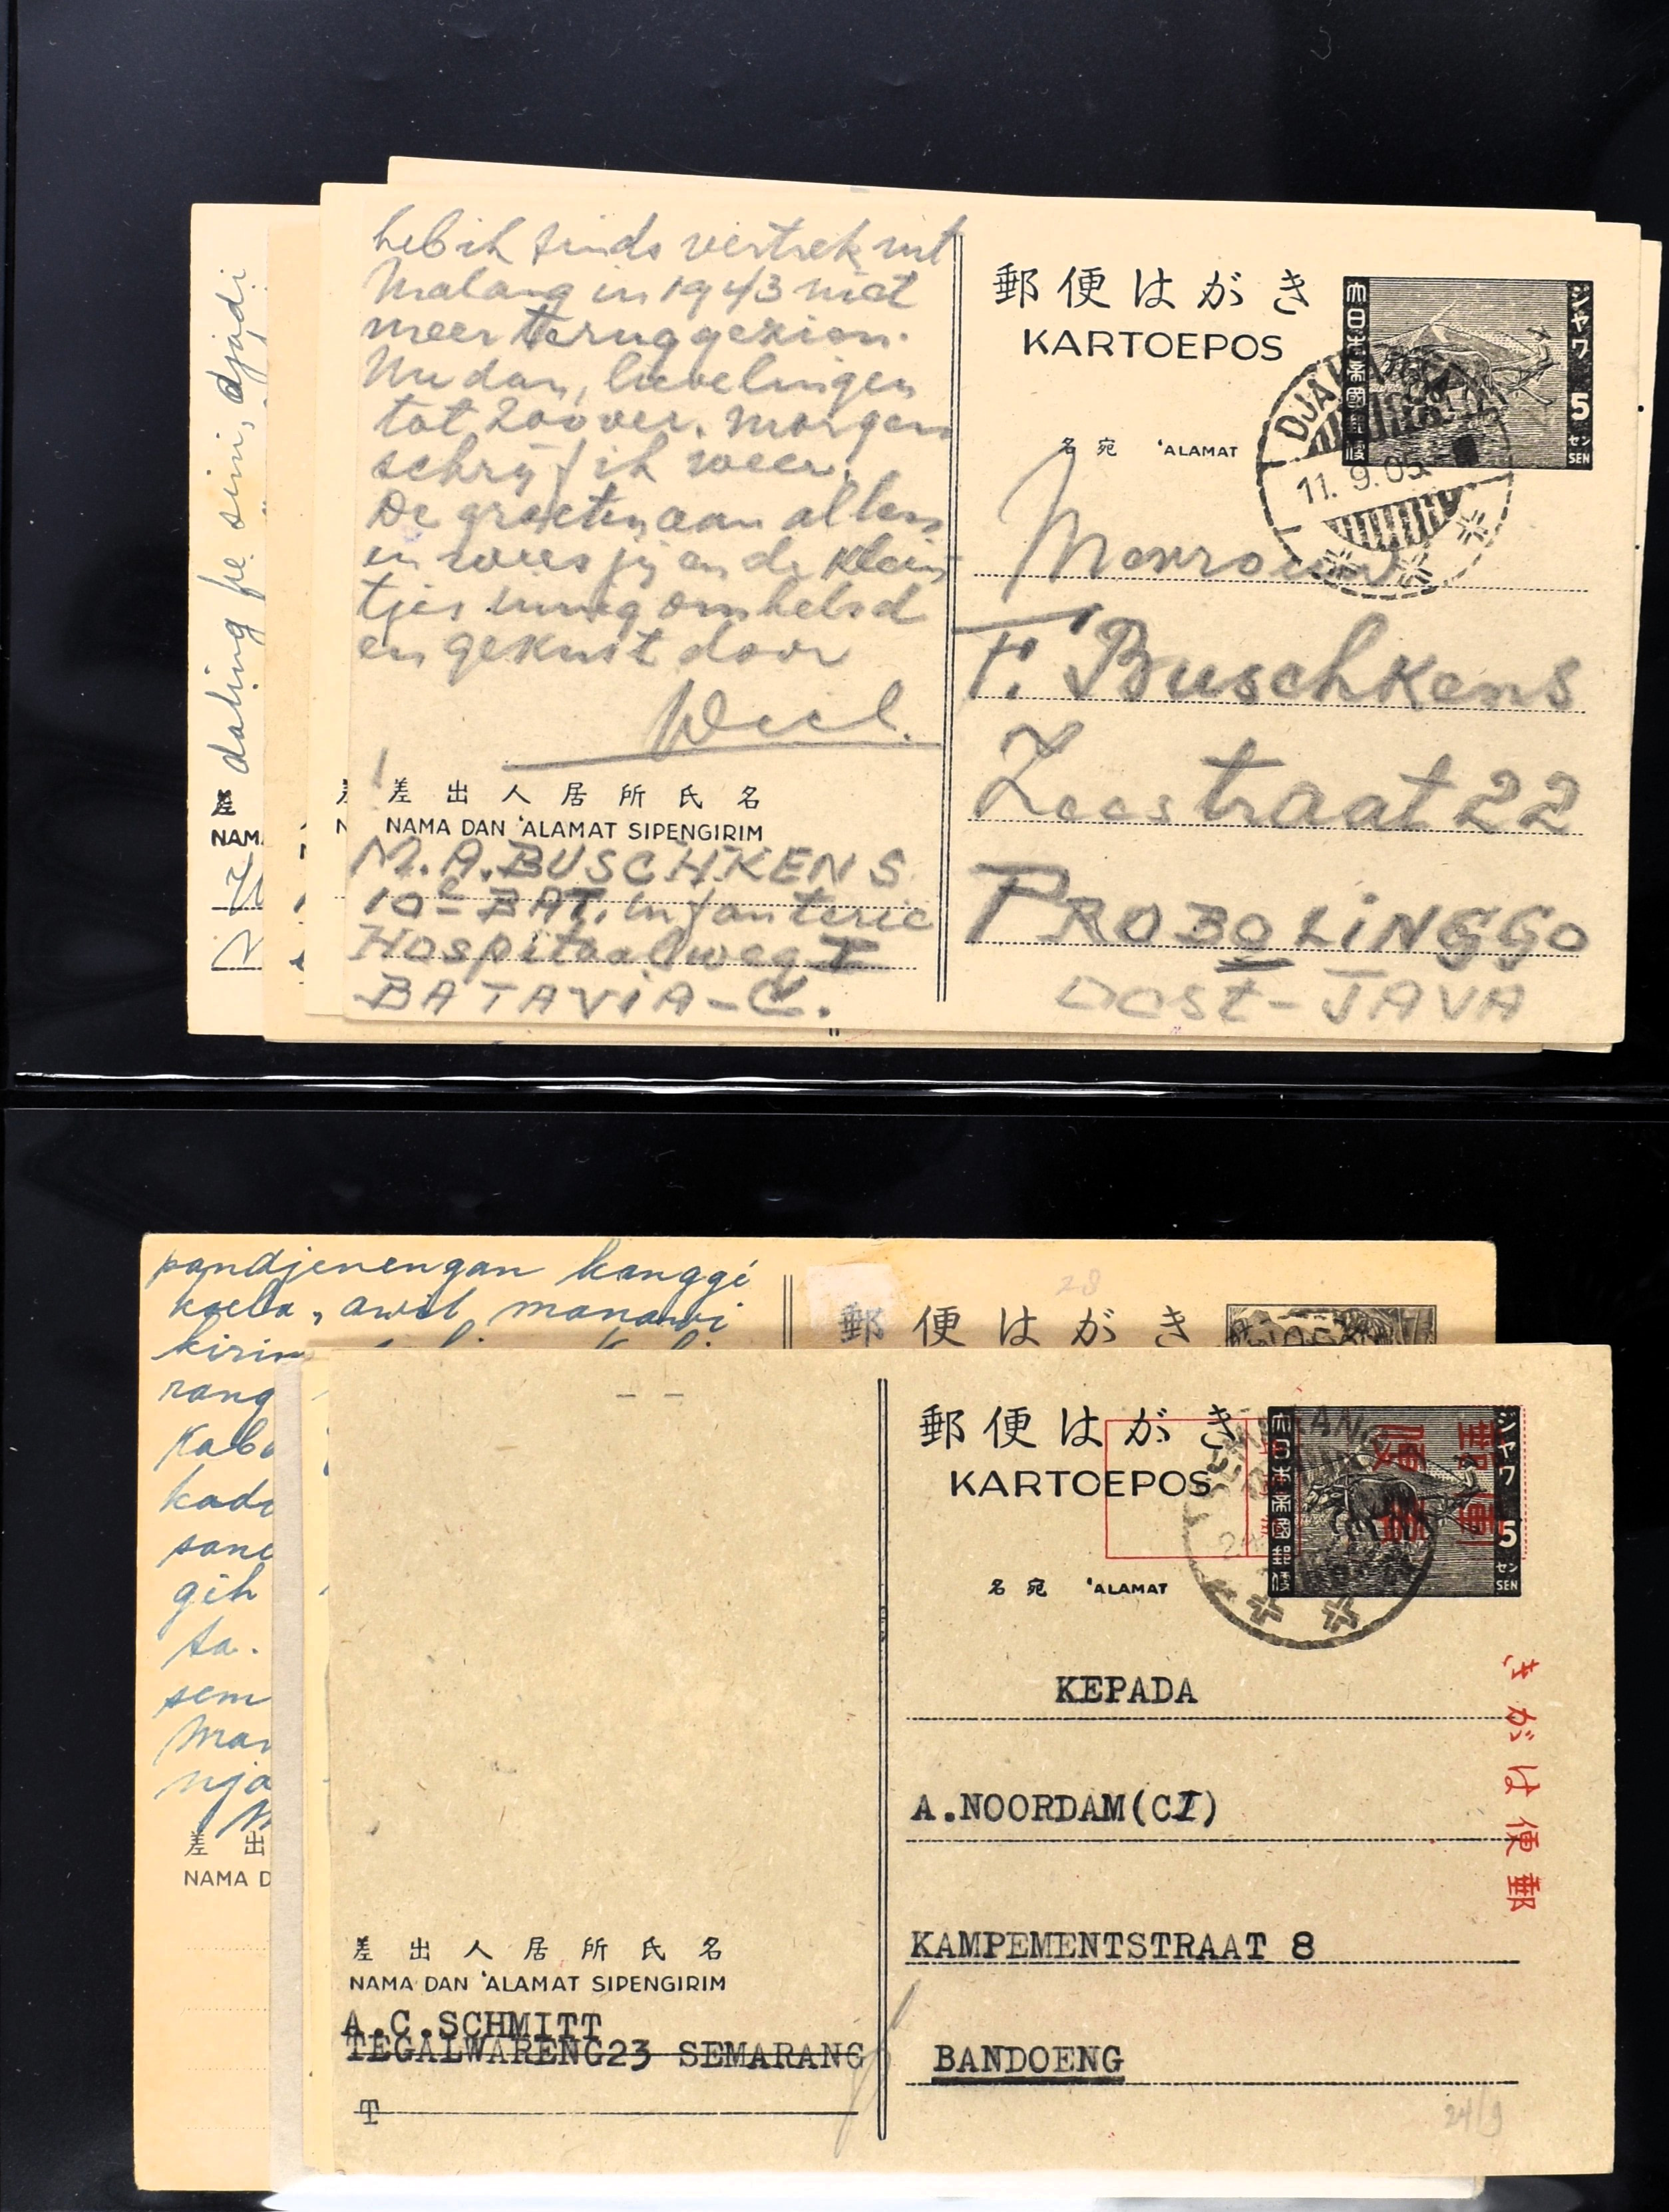 daling fe sini, djadi
差
NAMA
heb ik sinds vertrek uit
Malang in 1943 niet
meer teruggezien.
Nu dan, lievelingen
tot zoover. Morgen
schrijf ik weer.
De groeten aan allen
en wees jij en de klein
tjes innig omhelsd
en gekust door
差出人居所氏名
NAMA DAN 'ALAMAT SIPENGIRIM
M.A. BUSCHKENS
10e BAT. Infanterie
Hospitaalweg I
BATAVIA-C.
郵便はがき
KARTOEPOS
大日本帝國郵便
ジャワ
5
セン
SEN
DJAKA
11.9.05
名宛 'ALAMAT
Mevrouw
F. Buschkens
Zeestraat 22
PROBOLINGGO
OOST-JAVA
pandjenengan kanggé
koela, awit manawi
kirim
rang
Kabo
kado
sane
gih
ta.
sem
Man
nja
差出
NAMA D
28
郵便はがき
郵便はがき
KARTOEPOS
大日本帝國郵便
ジャワ
5
セン
SEN
SEMARANG
名宛 'ALAMAT
KEPADA
A.NOORDAM(CI)
KAMPEMENTSTRAAT 8
BANDOENG
郵便はがき
24/9
差出人居所氏名
NAMA DAN 'ALAMAT SIPENGIRIM
A.C.SCHMITT
TEGALWARENG23 SEMARANG
T